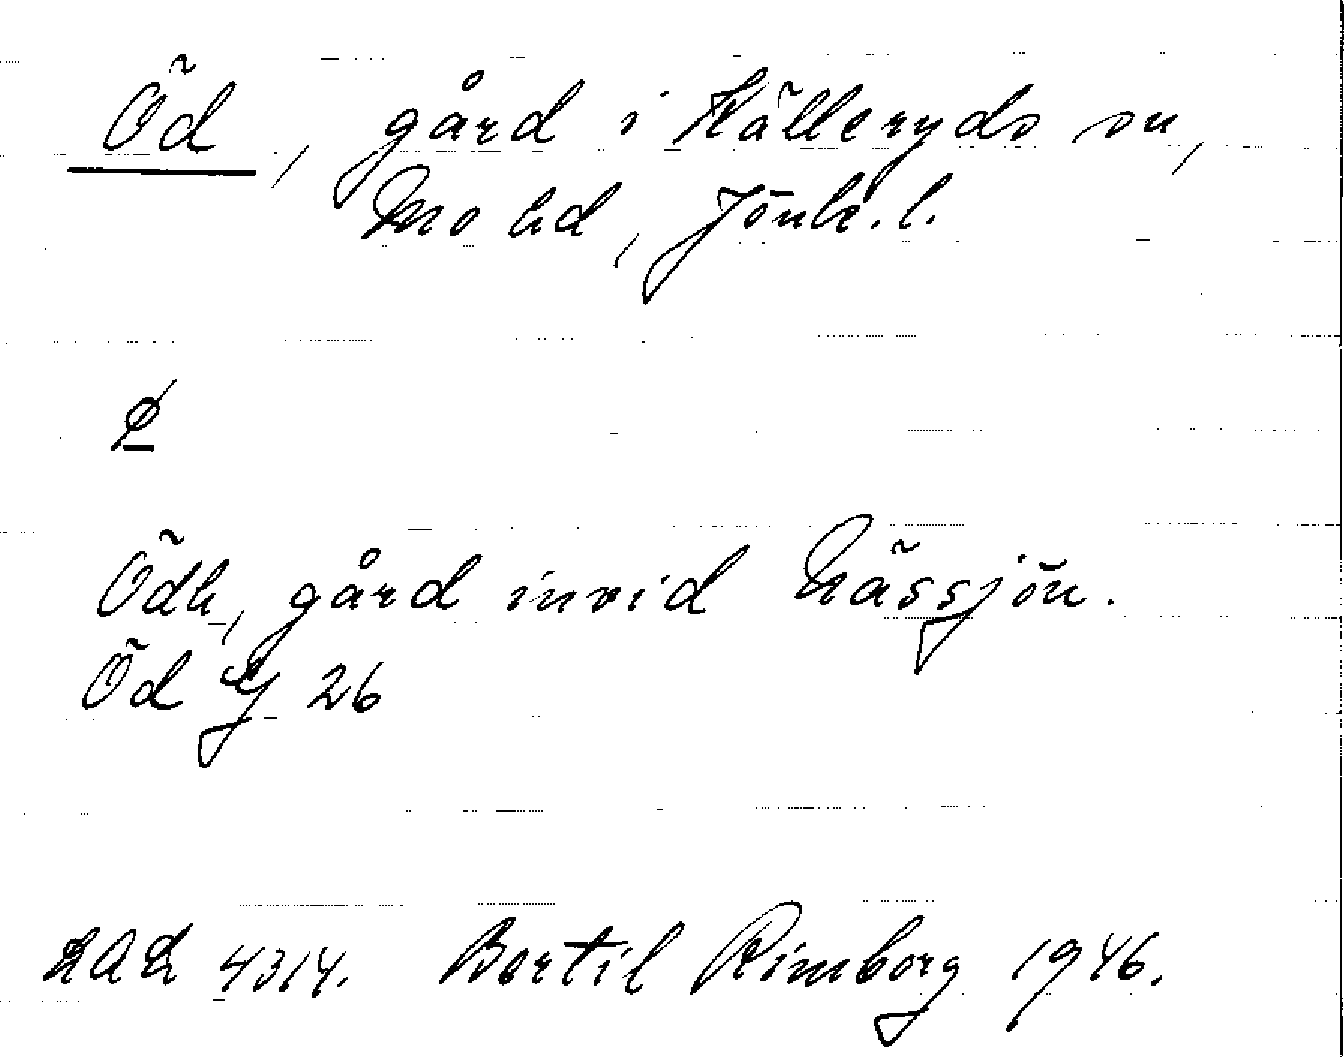 Öd, gård i Källeryds sn,
Mo hd, Jönk. l.
Ödh, gård invid Nässjön.
Öd 26
LAL 4314. Bertil Rimborg 1946.